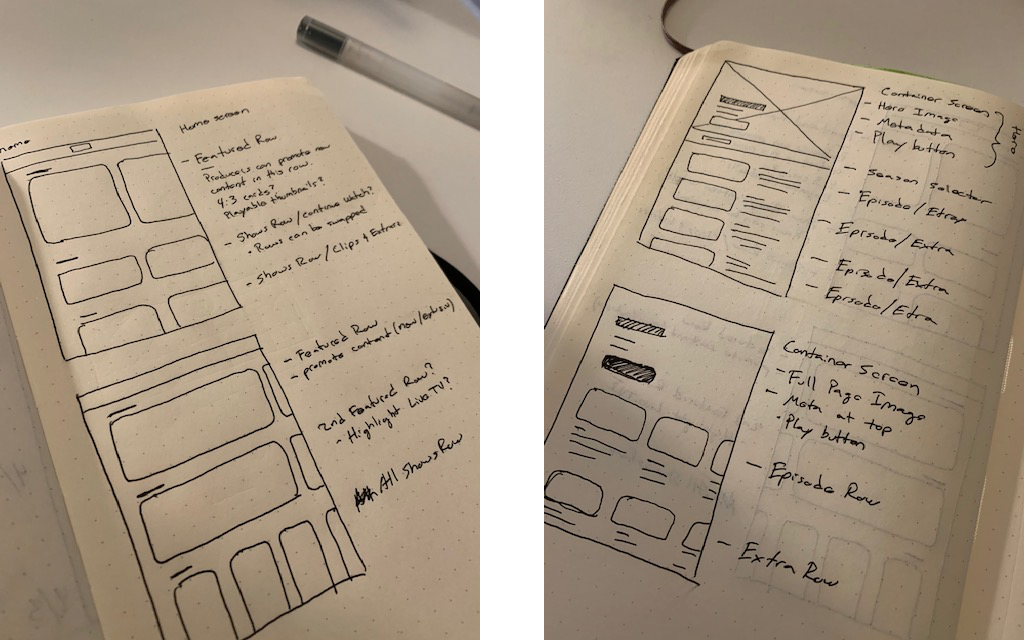 Home
Home screen
- Featured Row
Producers can promote new
content in this row.
4:3 cards?
Playable thumbnails?
- Shows Row / continue watch?
• Rows can be swapped
- Shows Row / Clips & Extras?
- Featured Row
- promote content (new/exclusive)
2nd Featured Row?
- Highlight Live TV?
All Shows Row
Container Screen
- Hero Image
- Metadata
- Play button
Hero
- Season selector
- Episode/Extra
- Episode/Extra
- Episode/Extra
- Episode/Extra
Container Screen
- Full Page Image
- Meta at top
• Play button
- Episode Row
- Extra Row